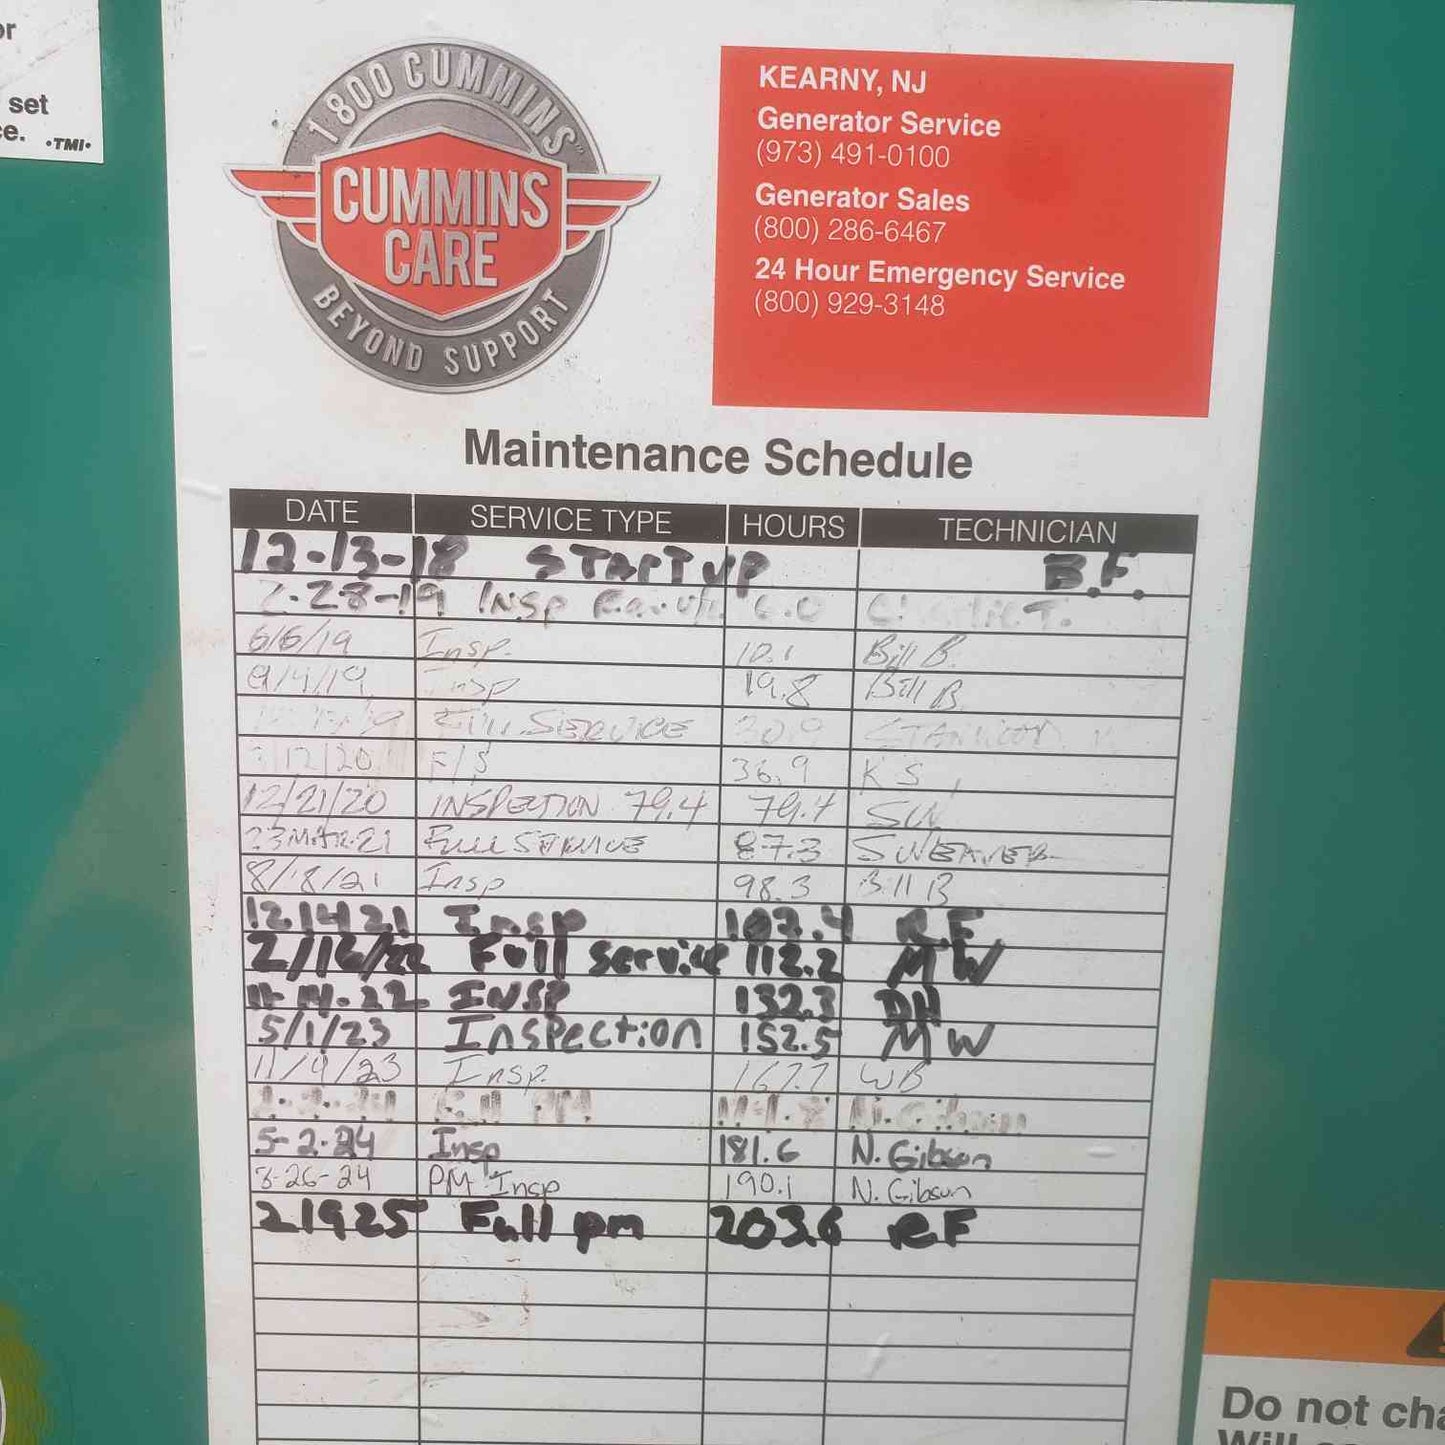 or
set
ce. •TMI•
1 800 CUMMINS™
CUMMINS
CARE
BEYOND SUPPORT
KEARNY, NJ
Generator Service
(973) 491-0100
Generator Sales
(800) 286-6467
24 Hour Emergency Service
(800) 929-3148
Maintenance Schedule
DATE SERVICE TYPE HOURS TECHNICIAN
12-13-18 STARTUP B.F.
2-28-19 INSP 6.0
6/6/19 Insp. 10.1 Bill B.
9/4/19 Insp 19.8 Bill B
Full SERVICE 30.9
/12/20 F/S 36.9 KS
12/21/20 INSPECTION 79.4 79.4 SW
23MAR21 Full SERVICE 87.3 SWEAVER
8/18/21 Insp 98.3 Bill B
121421 Insp 107.4 R.F
2/16/22 Full service 112.2 MW
11-14-22 INSP 132.3 DH
5/1/23 Inspection 152.5 MW
11/9/23 Insp. 167.7 WB
PM N.Gibson
5-2-24 Insp 181.6 N.Gibson
8-26-24 PM Insp 190.1 N.Gibson
21925 Full pm 203.6 RF
Do not cha